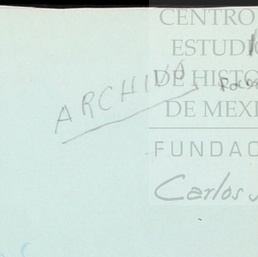 CENTRO
ESTUDI
DE HISTO
DE MEXI
FUNDAC
Carlos
ARCHIVO